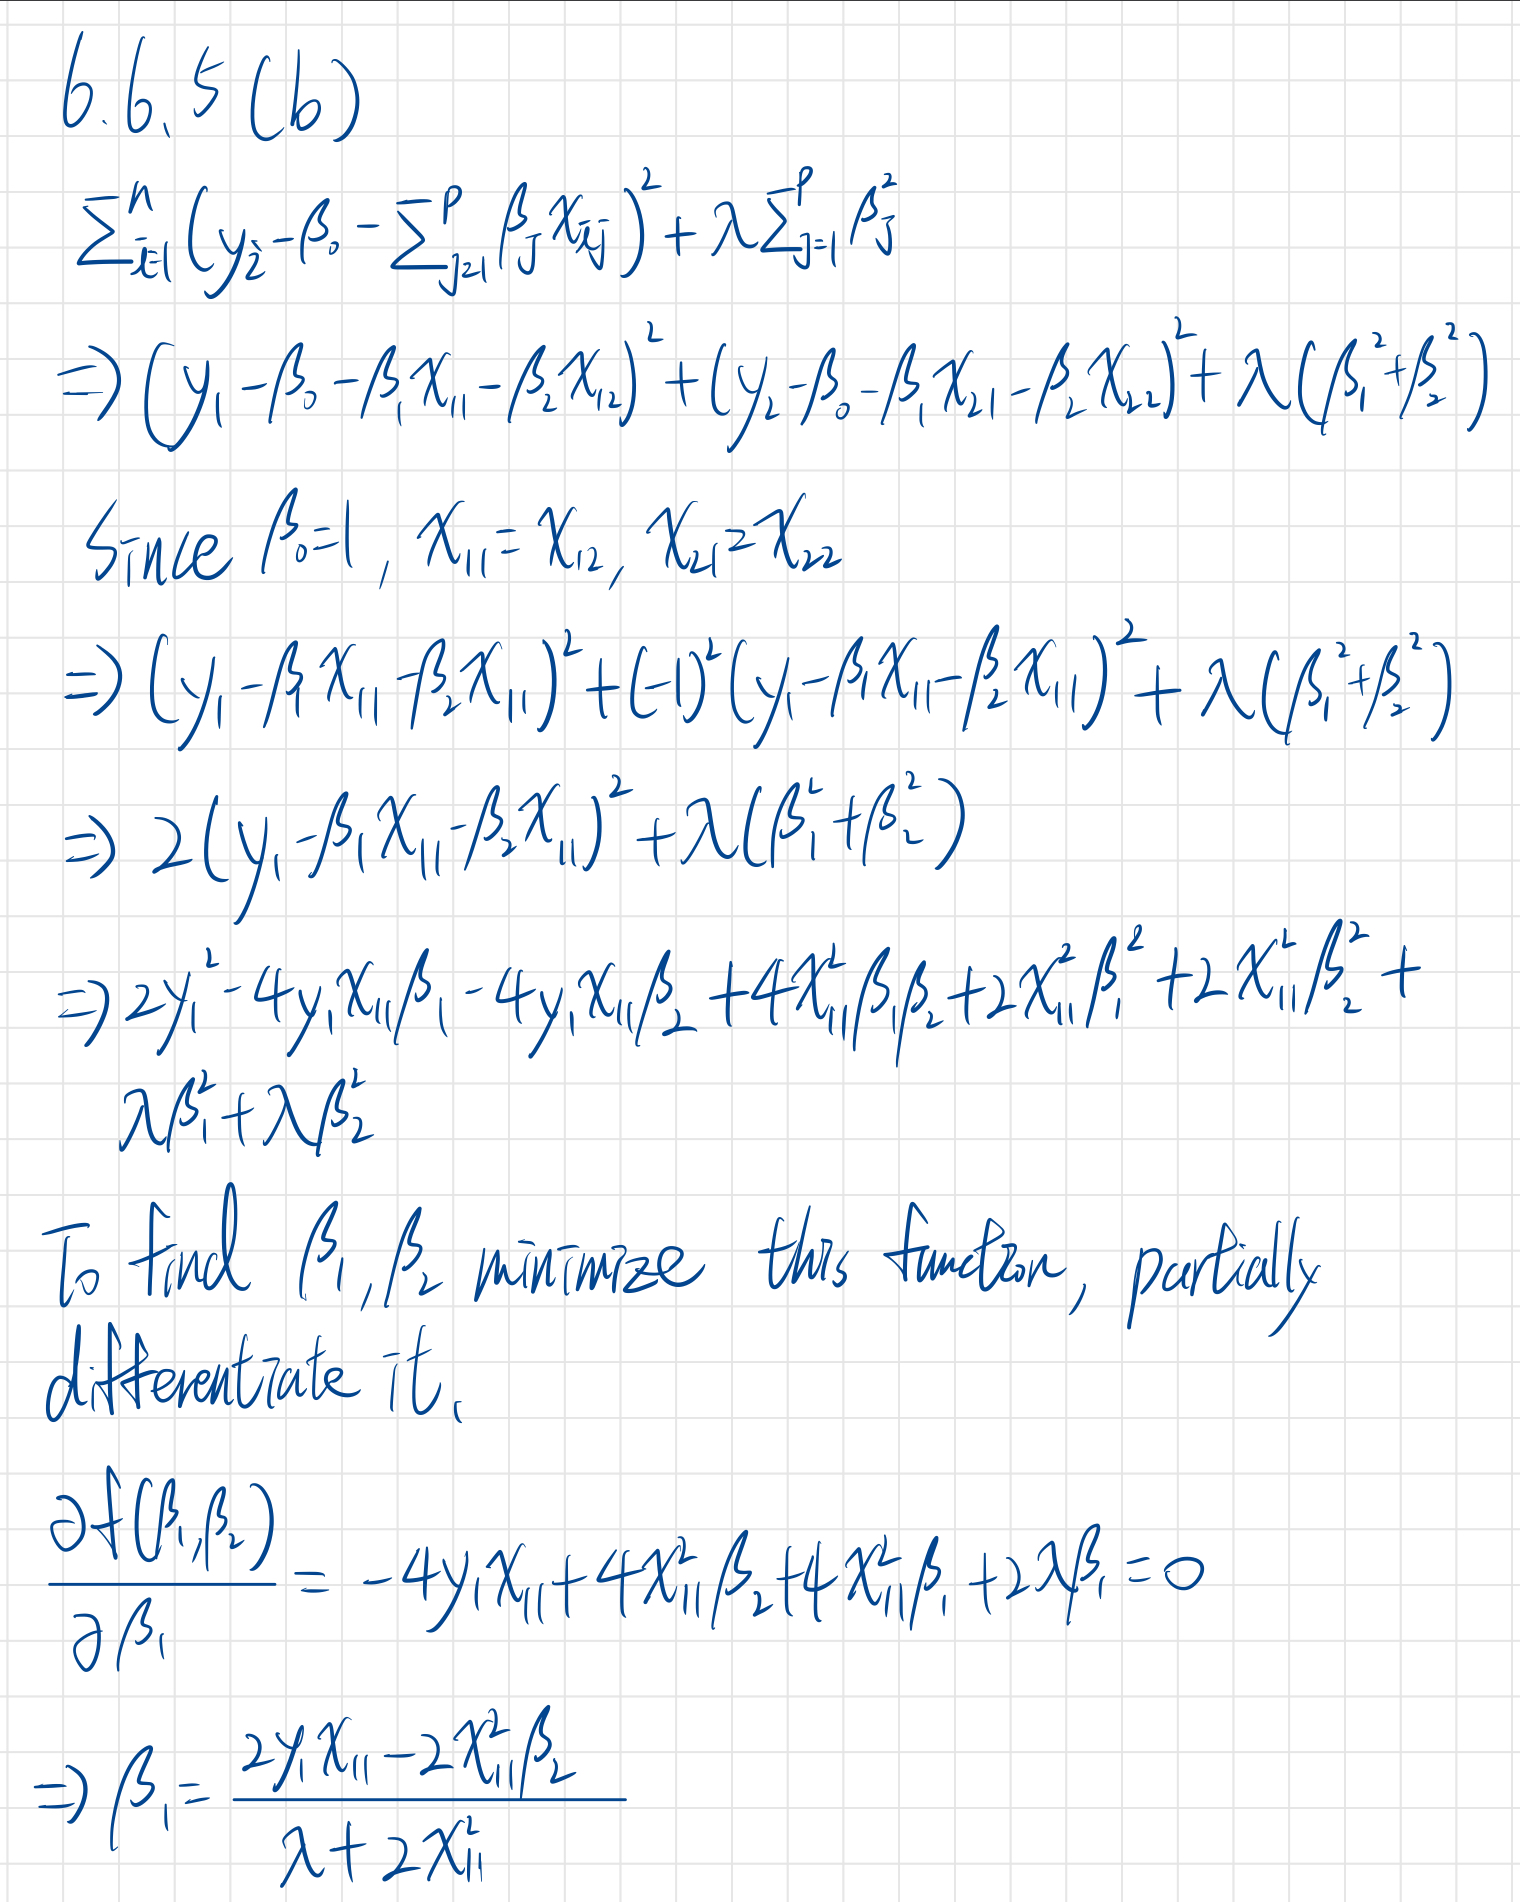 6.6.5 (b)
∑ⁿᵢ₌₁ (yᵢ - β₀ - ∑ᵖⱼ₌₁ βⱼ xᵢⱼ)² + λ ∑ᵖⱼ₌₁ βⱼ²
⇒ (y₁ - β₀ - β₁x₁₁ - β₂x₁₂)² + (y₂ - β₀ - β₁x₂₁ - β₂x₂₂)² + λ(β₁² + β₂²)
Since β₀ = 1, x₁₁ = x₁₂, x₂₁ = x₂₂
⇒ (y₁ - β₁x₁₁ - β₂x₁₁)² + (-1)² (y₁ - β₁x₁₁ - β₂x₁₁)² + λ(β₁² + β₂²)
⇒ 2(y₁ - β₁x₁₁ - β₂x₁₁)² + λ(β₁² + β₂²)
⇒ 2y₁² - 4y₁x₁₁β₁ - 4y₁x₁₁β₂ + 4x₁₁²β₁β₂ + 2x₁₁²β₁² + 2x₁₁²β₂² +
λβ₁² + λβ₂²
To find β₁, β₂ minimize this function, partially
differentiate it.
∂f(β₁,β₂)/∂β₁ = -4y₁x₁₁ + 4x₁₁²β₂ + 4x₁₁²β₁ + 2λβ₁ = 0
⇒ β₁ = (2y₁x₁₁ - 2x₁₁²β₂)/(λ + 2x₁₁²)